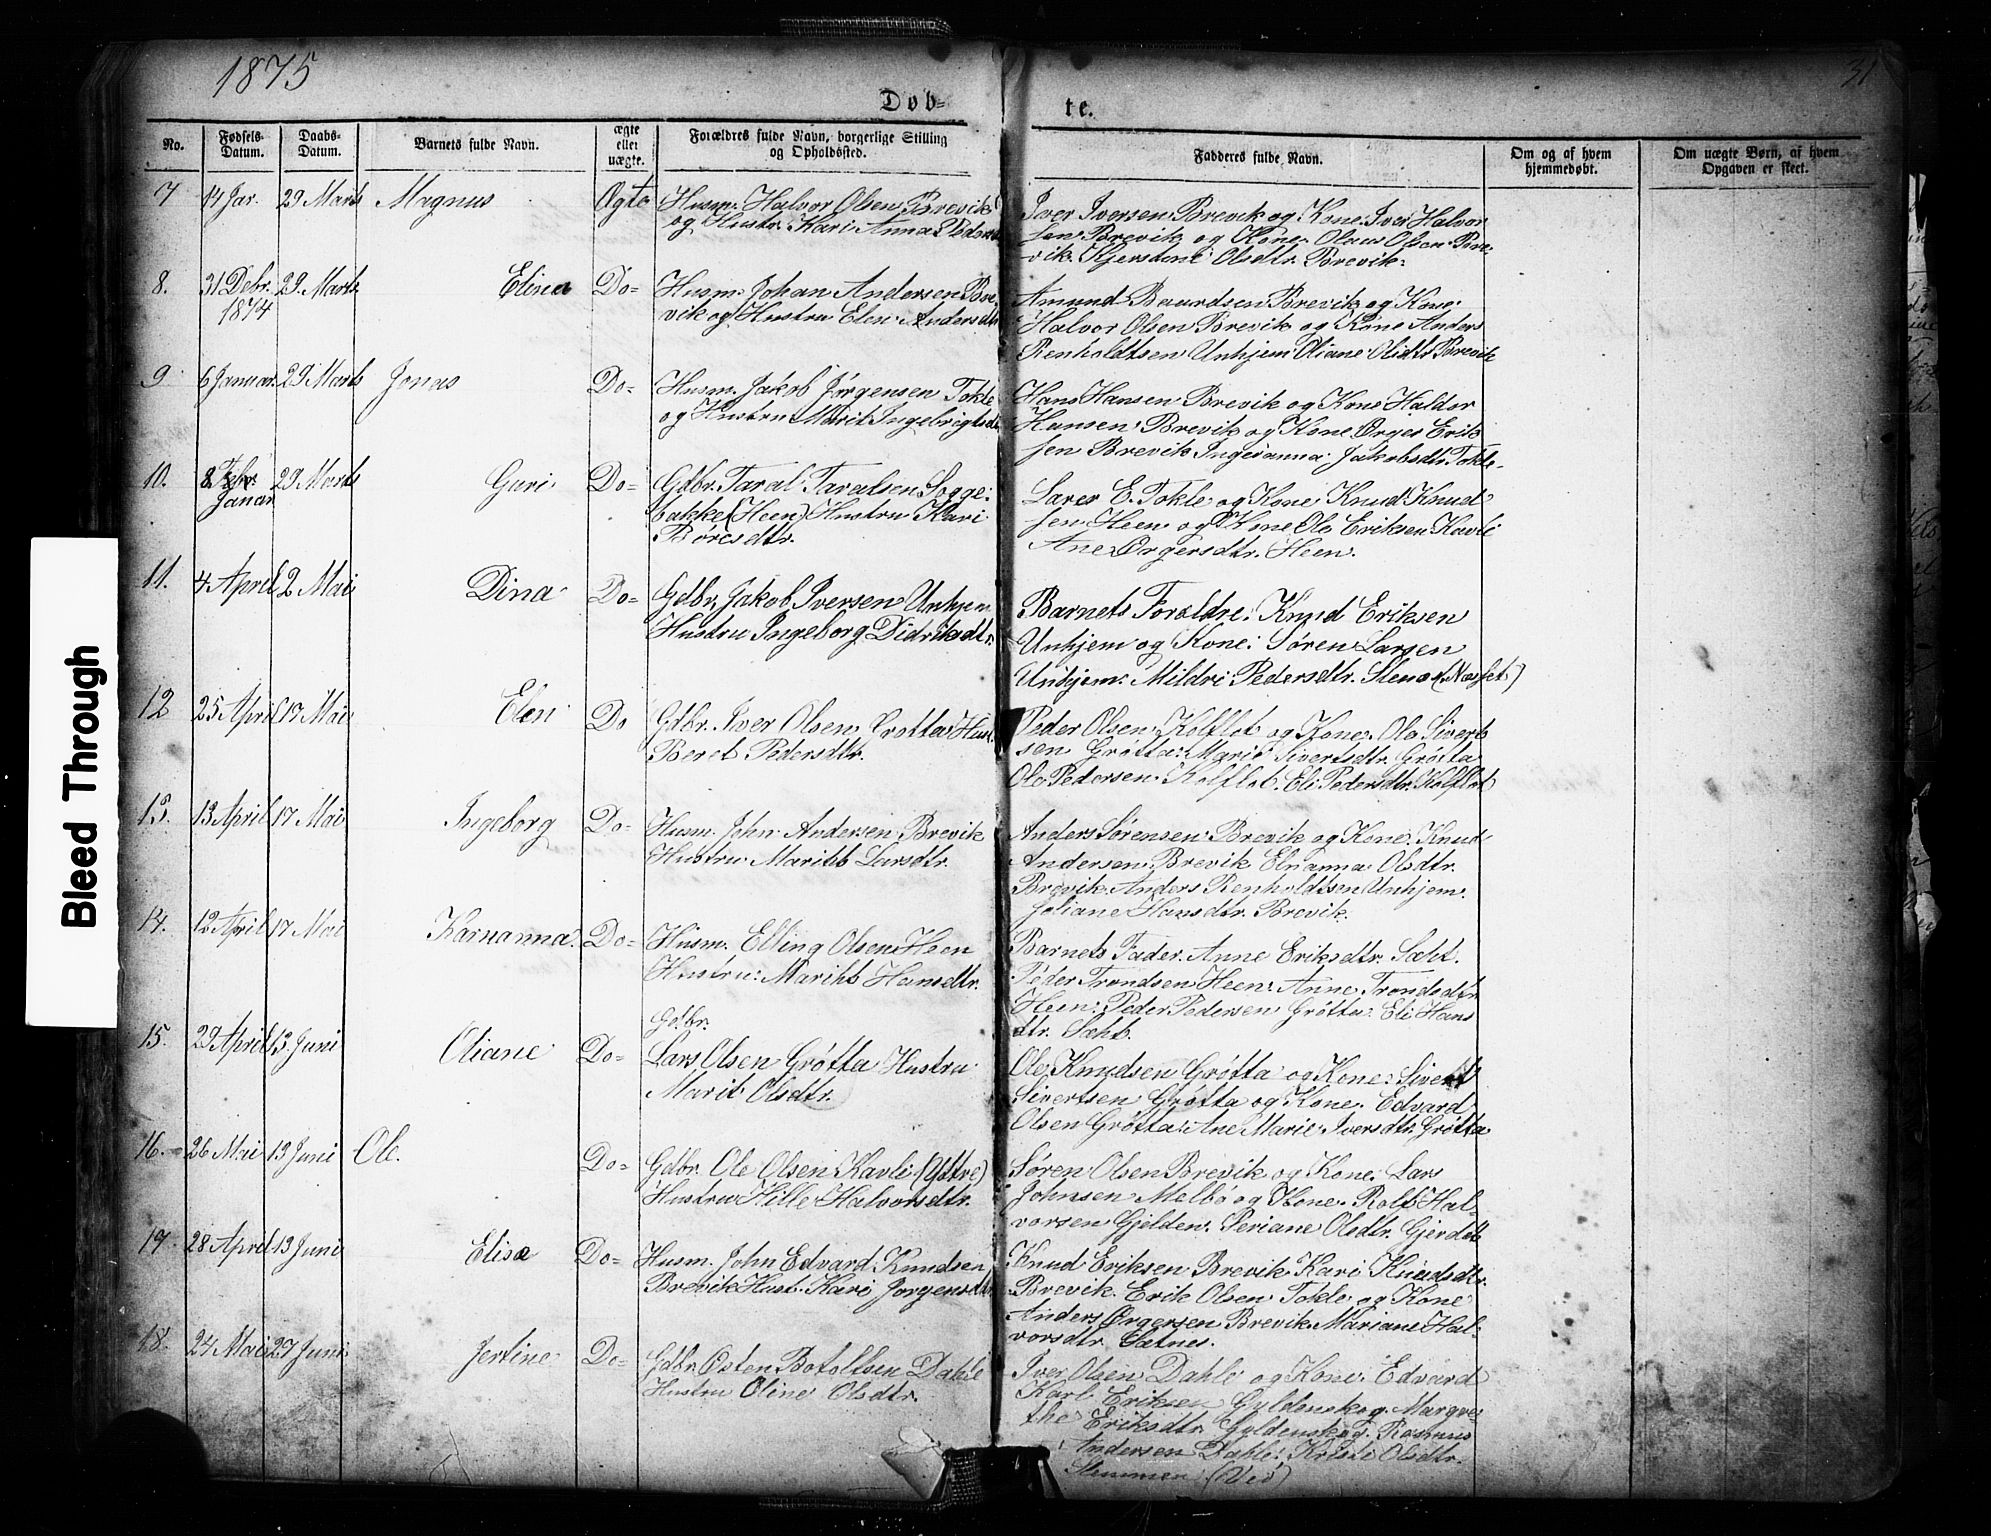 1875
31
Døb-
te.
No.
Fødsels-
Datum.
Daabs-
Datum.
Barnets fulde Navn.
ægte
eller
uægte.
Forældres fulde Navn, borgerlige Stilling
og Opholdssted.
Fadderes fulde Navn.
Om og af hvem
hjemmedøbt.
Om uægte Børn, af hvem
Opgaven er skeet.
7 14 Jar. 29 Marts Magnus Ægte Husm. Halvor Olsen Brevik
og Hustr. Kari Anna Peders
Iver Iversen Brevik og Kone. Iver Halvor
sen Brevik og Kone. Olaus Olsen Bre-
vik. Kjerstine Olsdtr. Brevik.
8. 31 Debr. 29. Marts Elina Do- Husm. Johan Andersen Bre-
1874 vik og Hustru Elen Andersdtr
Amund Baardsen Brevik og Kone.
Halvor Olsen Brevik og Kone Anders
Renholdtsen Unhjem Oliane Olsdtr Brevik
9 6 Januar. 29 Marts Jonas Do- Husm. Jakob Jørgensen Tokle
og Hustru Marit Ingebrigtsd
Hans Hansen Brevik og Kone Haldor
Hansen Brevik og Kone Ørges Erik
sen Brevik Ingeranna Jakobsdtr. Tokle-
10. 8 Febr. 29 Marts Guri Do- Gdbr. Taral Taralsen Sogge-
Januar bakke (Heen) Hustru Kari
Børesdtr.
Lars E. Tokle og Kone Knud Knud
sen Heen og Kone Ole Eriksen Kavli
Ane Ørgersdtr. Heen.
11. 4 April 2 Mai Dina Do- Gdbr. Jakob Iversen Unhjem
Hustru Ingeborg Didriksdtr.
Barnets Foraldre. Knud Eriksen
Unhjem og Kone. Søren Larsen
Unhjem. Mildri Pedersdtr. (Næsset)
12 25 April 13 Mai Elen Do Gdbr. Iver Olsen Grotta Hust.
Beret Pedersdtr.
Peder Olsen Kolflot og Kone. Ole Sivert
sen Grøtta. Marie Sivertsdtr. Grøtta
Ole Pedersen Kolflot. Eli Pedersdtr. Kolflot
13. 13 April 17 Mai Ingeborg Do- Husm. John Andersen Brevik
Hustru Marith Larsdtr.
Anders Sørensen Brevik og Kone. Knud
Andersen Brevik Elnanna Olsdtr.
Brevik. Anders Renholdtsen Unhjem.
Joliane Hansdtr. Brevik.
14. 12 April 17 Mai Karnanna. Do- Husm. Elling Olsen Heen
Hustru. Marith Hansdtr.
Barnets Fader. Anne Eriksdtr. Sæht.
Peder Trondsen Heen. Anne Trondsdtr.
Heen. Peder Pedersen Grøtta. Eli Hans
dtr. Sæht.
15. 29 April 13. Juni Oliane Do- Gdbr.
Lars Olsen Grøtta Hustru
Marit Olsdtr.
Ole Knudsen Grøtta og Kone. Sivert
Sivertsen Grøtta og Kone. Edvard
Olsen Grøtta. Ane Marie Iversdtr. Grøtta
16. 26 Mai 13 Juni Ole. Do- Gdbr. Ole Olsen Kavli (Ystre)
Hustru Hille Halvorsdtr.
Søren Olsen Brevik og Kone. Lars
Johnsen Melbø og Kone. Rolf Hal-
vorsen Gjelden. Periane Olsdtr. Gjerdet
17. 28 April 13 Juni Elise Do- Husm. John Edvard Knudsen
Brevik Hust. Kari Jorgensdtr
Knud Eriksen Brevik Kari Knudsdtr.
Brevik. Erik Olsen Tokle og Kone
Anders Ørgersen Brevik Mariane Hal-
vorsdtr. Sætnes.
18. 24 Mai 27 Juni Jertine Do- Gdbr. Østen Botoltsen Dahle
Hustru Oline Olsdtr.
Iver Olsen Dahle og Kone. Edvard
Karl Eriksen Gyldenskog. Margre-
the Eriksdtr. Gyldenskog. Rasmus
Andersen Dahle. Kristi Olsdtr.
Stemmen (Veø)
Bleed Through